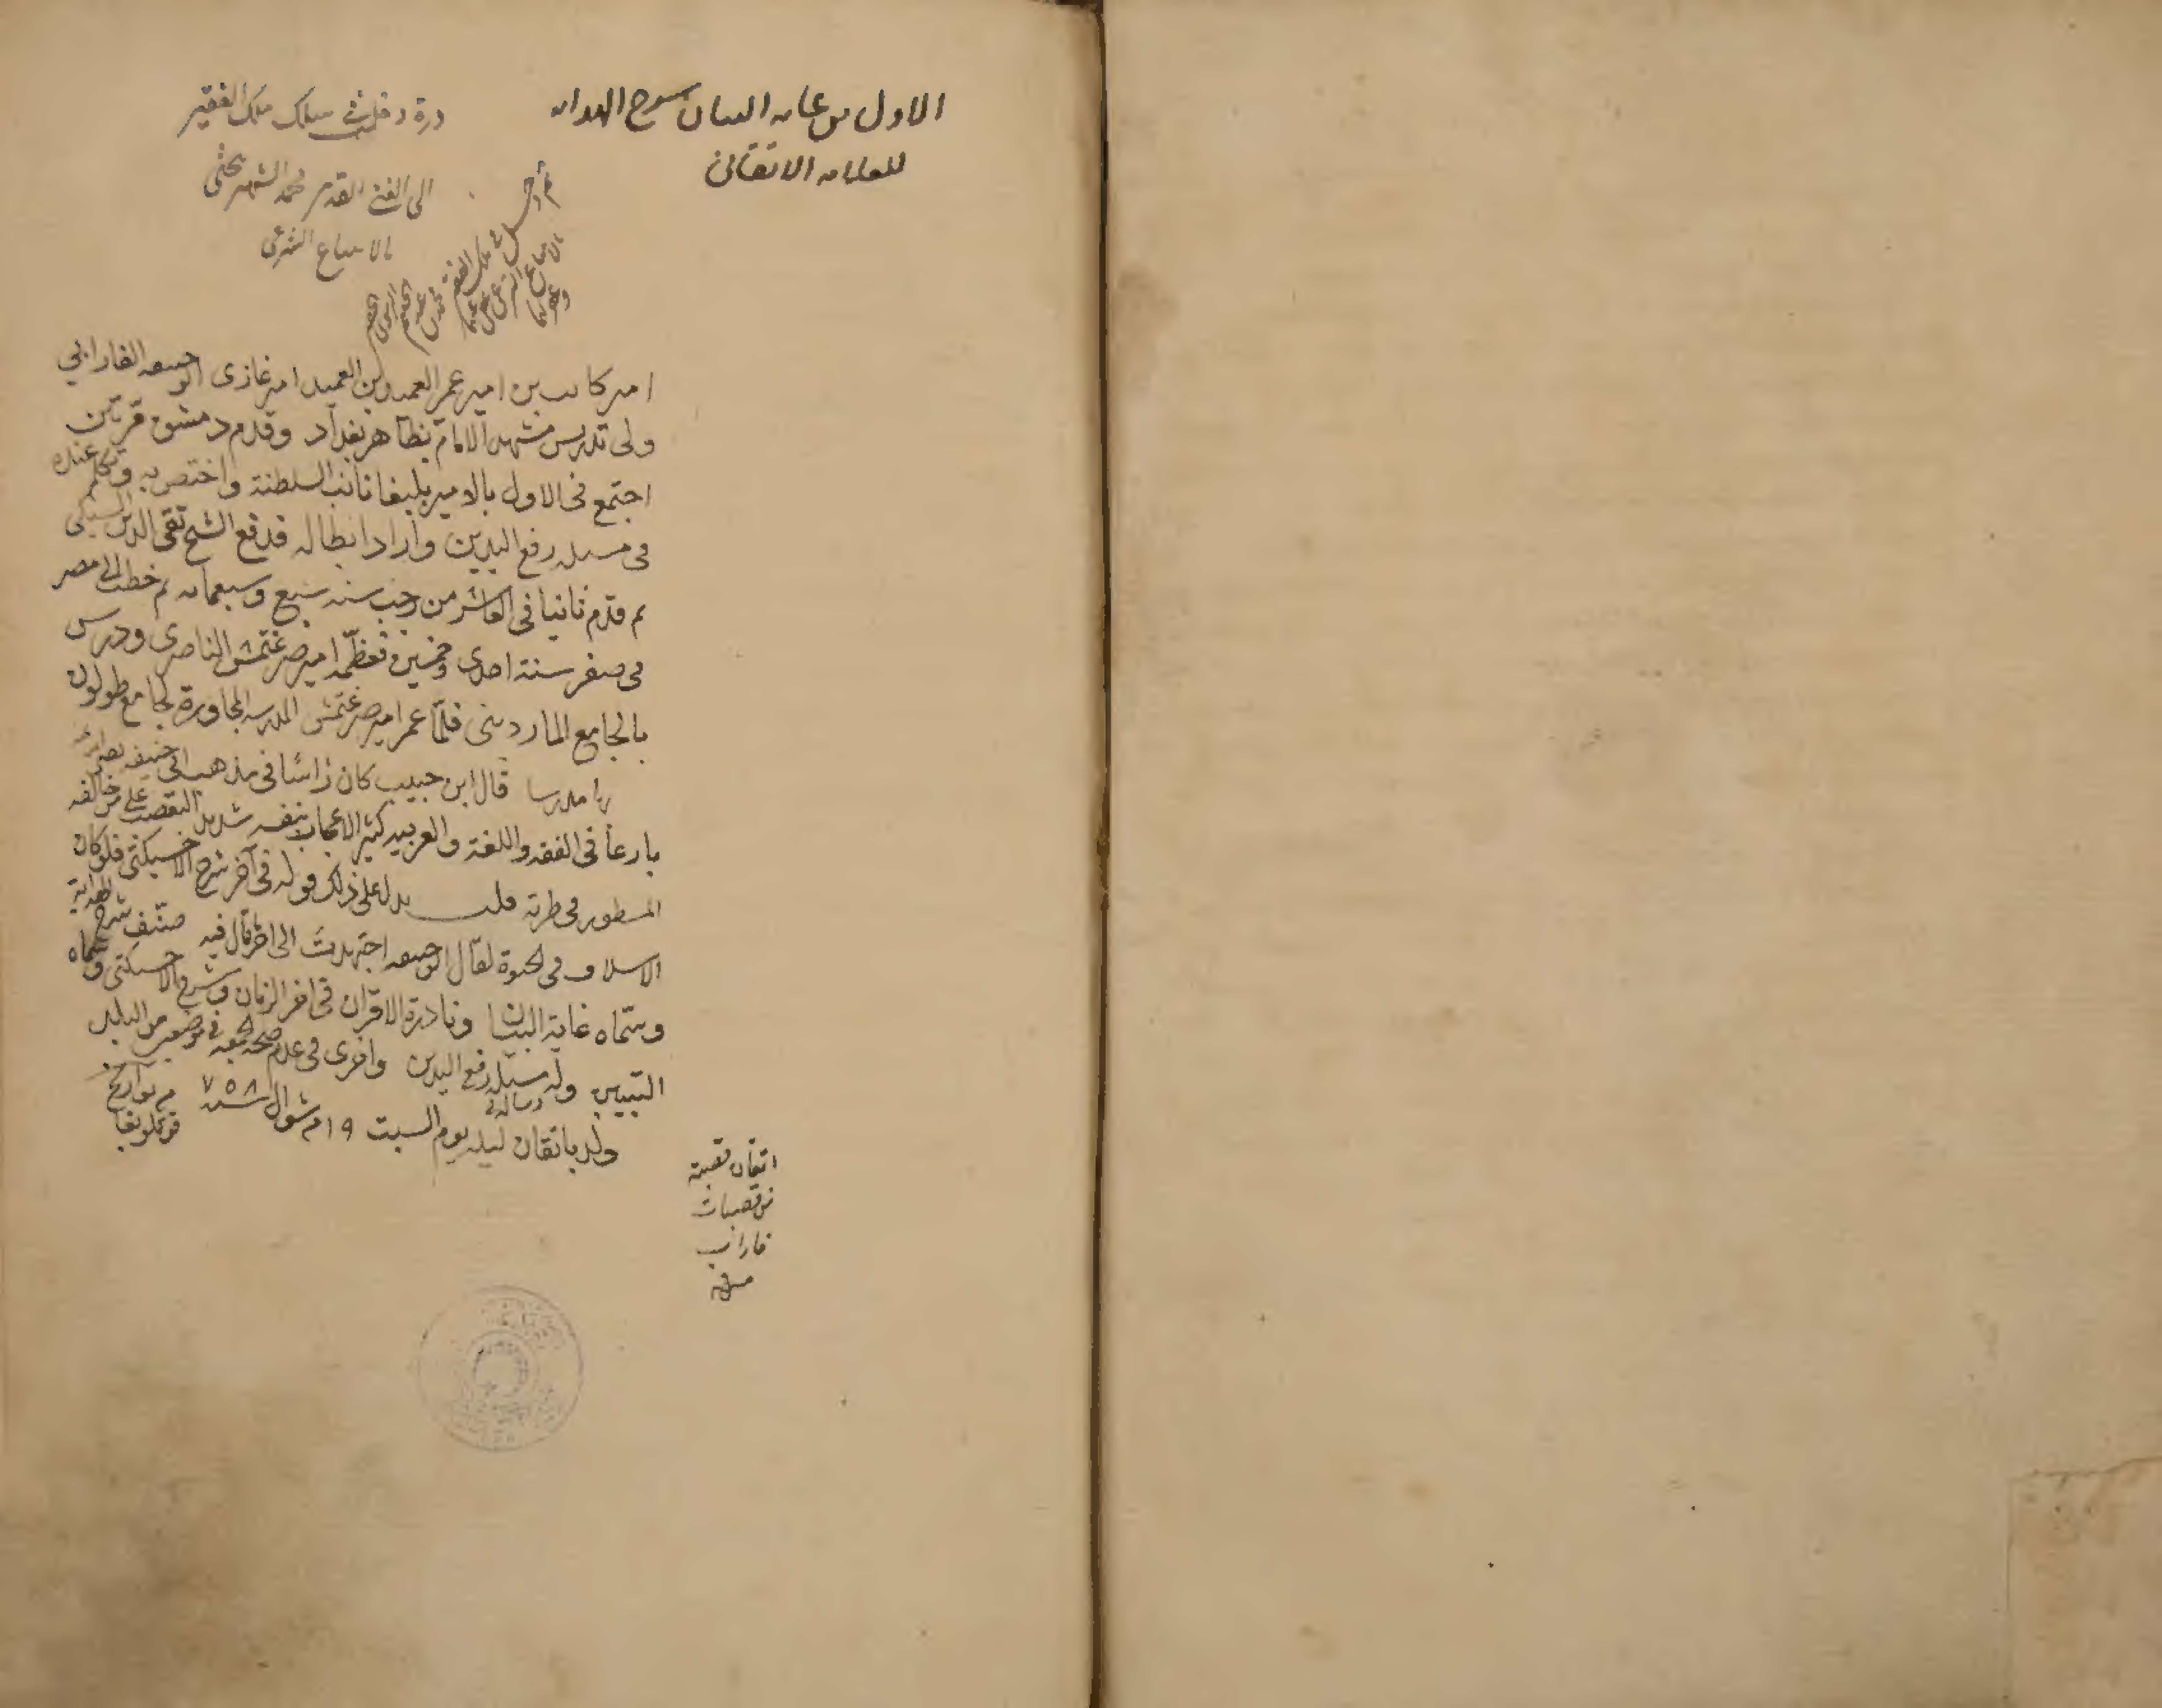 الاول من غاية البيان شرح الهداية
للعلامة الاتقاني
درة دخلت في سلك ملك الفقير
الى الغني القدير محمد الشهير
بالابتياع الشرعي
ملك الفقير
بالابتياع الشرعي
امير كاتب بن امير عمر العميد بن العميد امير غازى ابو حنيفه الفارابي
ولى تدريس مشهد الامام بظاهر بغداد وقدم دمشق مرتين
اجتمع في الاول بالامير يلبغا نائب السلطنة واختص به وتكلم عنده
في مسئله رفع اليدين واراد ابطاله فدفع الشيخ تقي الدين السبكي
ثم قدم ثانيا في العاشر من رجب سنه سبع وسبعمايه ثم خطب الى مصر
في صفر سنة احدى وخمسين فعظمه امير صرغتمش الناصرى ودرس
بالجامع المارديني فلما عمر امير صرغتمش المدرسه المجاورة لجامع طولون
مدرسا قال ابن حبيب كان رأسا في مذهب ابي حنيفه
بارعا في الفقه واللغة والعربيه كثير الاعجاب بنفسه شديد التعصب على من خالفه
المسطور في طرته قلت يدل على ذلك قوله في آخر شرح الاخسيكتي فلو كان
الاسلاف في الحيوة لقال ابو حنيفه اجتهدت الى اخر ما قال فيه صنف شرح الهداية
وسماه غاية البيان ونادرة الاقران في اخر الزمان وشرح الاخسيكتي وسماه
التبيين وله رسالة في مسئله رفع اليدين واخرى في عدم صحة الجمعه في موضعين من البلد
ولد باتقان ليلة يوم السبت ١٩ من شوال سنه ٧٥٨ من تواريخ
قطلوبغا
اتقان قصبة
من قصبات
فاراب
منه